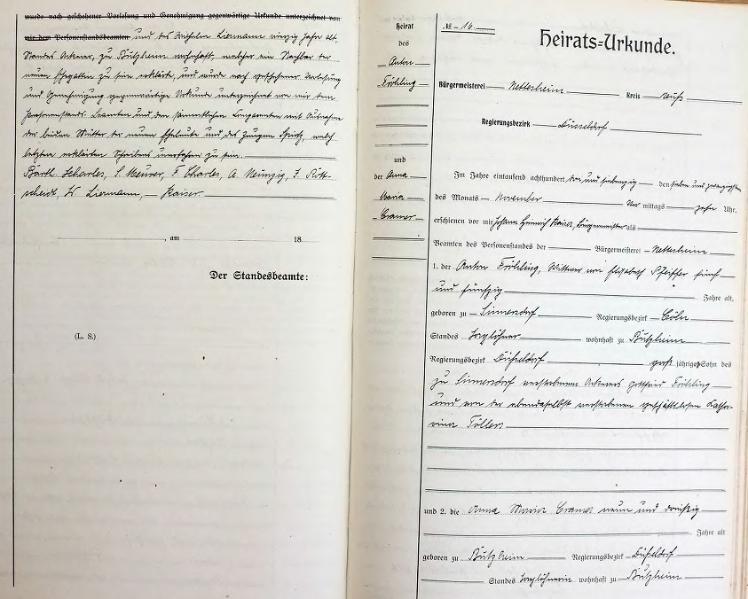 wurde nach geschehener Vorlesung und Genehmigung gegenwärtige Urkunde unterzeichnet von
mir dem Personenstandsbeamten und des Wilhelm Liermann vierzig Jahre alt,
Standes Ackerer, zu Bützheim wohnhaft, welcher ein Nachbar der
neuen Ehegatten zu sein erklärte, und wurde nach geschehener Vorlesung
und Genehmigung gegenwärtige Urkunde unterzeichnet von mir dem
Personenstands Beamten und den sämmtlichen Comparenten mit Ausnahme
der beiden Mütter der neuen Eheleute und des Zeugen, welch
letztere erklärten Schreibens unerfahren zu sein.
Barth. Scharles, S. Meurer, F. Charles, A. Neunzig, J. Rott-
scheidt, W. Liermann, Kaiser
, am 18
Der Standesbeamte:
(L. S.)
Heirat
des
Anton
Fröhling
und
der Anna
Maria
Cramer
№ 16
Heirats-Urkunde.
Bürgermeisterei Nettesheim Kreis Neuß
Regierungsbezirk Düsseldorf
Im Jahre eintausend achthundert und siebenzig den sieben und zwanzigsten
des Monats November Vor mittags zehn Uhr,
erschienen vor mir Johann Heinrich Bürgermeister als
Beamten des Personenstandes der Bürgermeisterei Nettesheim
1. der Anton Fröhling, Wittwer von Elisabeth Pfeiffer fünf
und fünfzig Jahre alt,
geboren zu Sinnersdorf Regierungsbezirk Cöln
Standes Taglöhner wohnhaft zu Bützheim
Regierungsbezirk Düsseldorf groß jähriger Sohn des
zu Sinnersdorf verstorbenen Ackerers Gottfried Fröhling
und von der ebendaselbst verstorbenen geschäftslosen Catha-
rina Töller
und 2. die Anna Maria Cramer neun und dreißig
Jahre alt
geboren zu Bützheim Regierungsbezirk Düsseldorf
Standes Taglöhnerin wohnhaft zu Bützheim